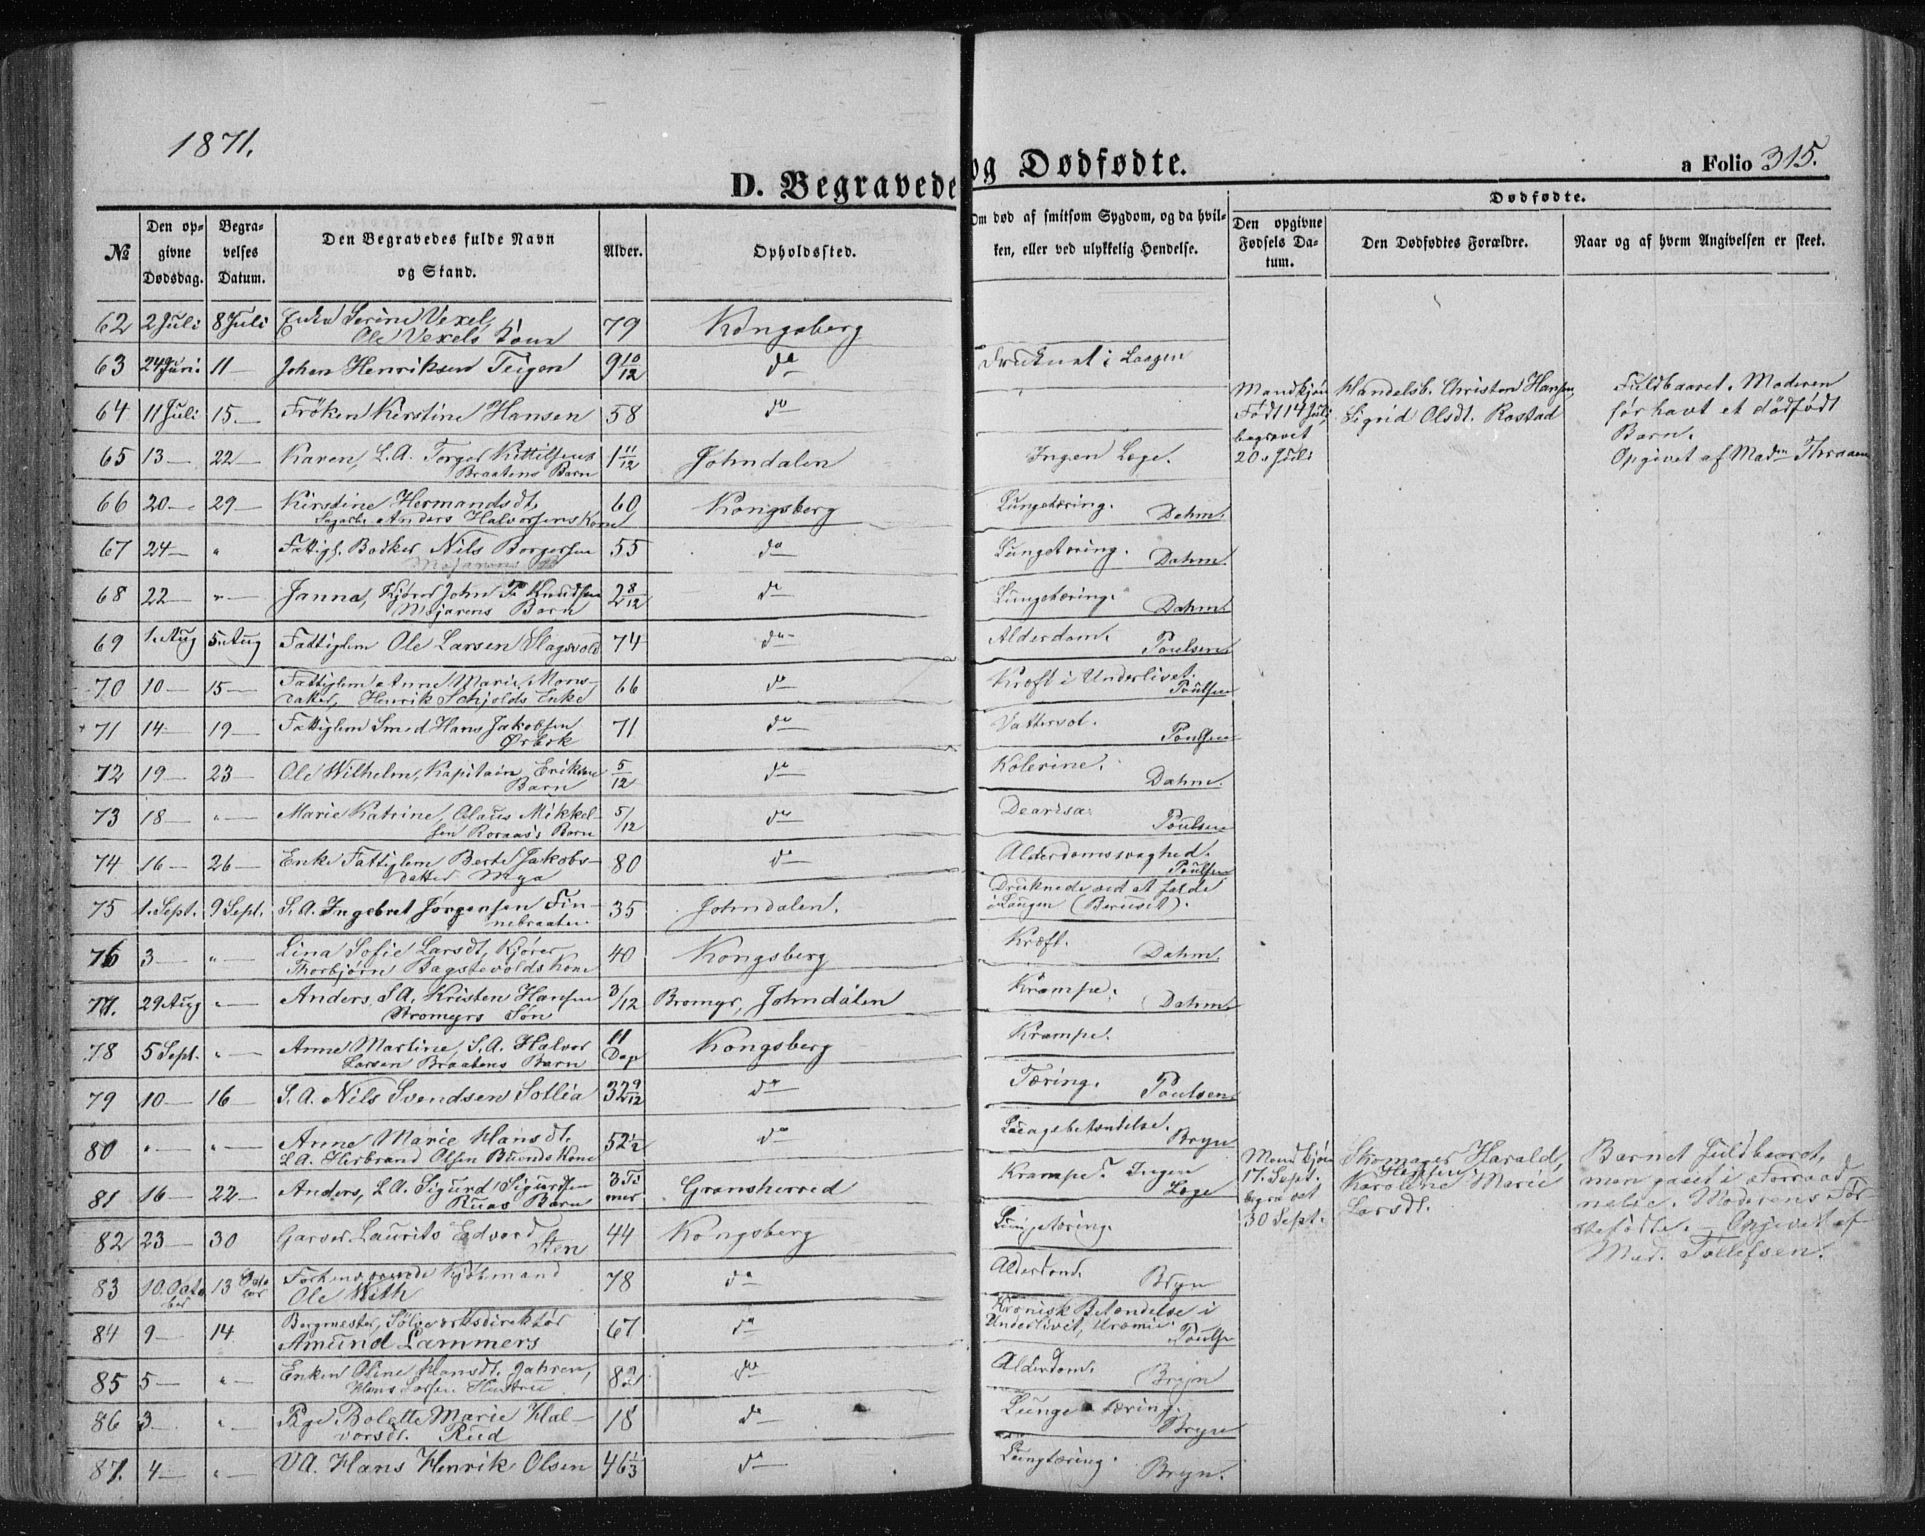 1871.
D. Begravede og Dødfødte.
a Folio 315.
№
Den opgivne Dødsdag.
Begravelses Datum.
Den Begravedes fulde Navn og Stand.
Alder.
Opholdssted.
Om død af smitsom Sygdom, og da hvilken, eller ved ulykkelig Hendelse.
Dødfødte.
Den opgivne Fødsels Datum.
Den Dødfødtes Forældre.
Naar og af hvem Angivelsen er skeet.
62 2 Juli 8 Juli Serine Vexel, 79 Kongsberg
Ole Vexels Kone
63 24 Juni 11 — Johan Henriksen Teigen 9 10/12 do Druknet i Laagen
64 11 Juli 15 — Frøken Kirstine Hansen 58 do
Mandkjøn Født 14 Juli, begravet 20. Juli
Handelsb. Christen Hansen, Sigrid Olsdt. Rostad
Fuldbaaret. Moderen før havt et dødfødt Barn.
Opgivet af Madm Thraaen
65 13 — 22 — Karen, S.A. Torger Kittilsens 1 11/12 Johndalen Ingen Læge.
Braatens Barn
66 20 — 29 — Kirstine Hermandsdt. 60 Kongsberg Lungetæring. Dahm.
Anders Halvorsens Kone
67 24 — " Fattigl. Bødker Nils Borgersen 55 do Lungetæring. Dahm.
68 22 — " — Janna, Kjører John P. Knudsen 2 8/12 do Lungetæring. Dahm.
Mejarens Barn
69 1. Aug 5. Aug Fattiglem Ole Larsen Slagsvold 74 do Alderdom. Poulsen
70 10 — 15 — Fattiglem Anne Marie Monsdatter, Henrik Schjolds Enke 66 do Kræft i Underlivet. Poulsen
71 14 — 19 — Fattiglem Smed Hans Jakobsen 71 do Vattersot. Poulsen
Ørbek
72 19 — 23 — Ole Wilhelm, Kapitain Eriksens 5/12 do Kolerine. Dahm.
Barn
73 18 — " — Marie Katrine, Olaus Mikkelsen Roraas's Barn 5/12 do Dearisa. Poulsen
74 16 — 26 — Enke Fattiglem Berte Jakobsdatter Mya 80 do Alderdomssvaghed. Poulsen
75 1. Sept. 9 Sept. S.A. Ingebret Jørgensen Finnebraaten 35 Johndalen. Druknede ved at falde i Laugen (Beruset).
76 3 — " — Lina Sofie Larsdt, Kjører 40 Kongsberg Kræft. Dahm.
Thorbjørn Bagstevolds Kone
77. 29 Aug " — Anders, S.A. Kristen Hansen 3/12 Bromyr, Johndalen Krampe. Dahm.
Bromyrs Søn
78 5 Sept. " — Anne Martine, S.A. Halvor 11 Dage Kongsberg Krampe.
Larsen Braatens Barn
79 10 — 16 — S.A. Nils Svendsen Sotlia 32 9/12 do Tæring. Poulsen.
80 " — " — Anne Marie Hansdt. 52 1/2 do betændelse. Bryn
S.A. Herbrand Olsen Buends Kone
81 16 — 22 — Anders, S.A. Sigurd Sigurdsen 3 Timer Gransherred Krampe? Ingen Læge
Ruas Barn
Mandkjøn 17. Sept. begravet 30 Sept.
Skomager Harald Karoline Marie Larsdt.
Barnet fuldbaaret, men
Opgivet af Mad. Tollefsen.
82 23 — 30 Garver Laurits Edvard Sten 44 Kongsberg Lungetæring.
83 10. October 13 October Forhenværende Kjøbmand 78 do Alderdom. Bryn
Ole With
84 9 — 14 Bergmester, Sølvverksdirektør 67 do Kronisk Betændelse i Underlivet, Uræmie. Poulsen
Amund Lammers
85 5 — " — Enken Oline Hansdt. Jahren, do Alderdom. Bryn
Hans Larsen Hustru
86 3 — " — Pige Bolette Marie Halvorsdt. Rud 18 do Lungetæring. Bryn
87. 4 — " — VA. Hans Henrik Olsen 46 1/3 do Lungtæring. Bryn.